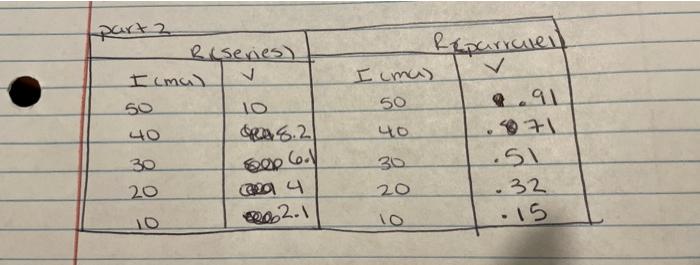 part 2
R(series) R(parralel)
I(ma) V I(ma) V
50 10 50 .91
40 8.2 40 .71
30 6.1 30 .51
20 4 20 .32
10 2.1 10 .15